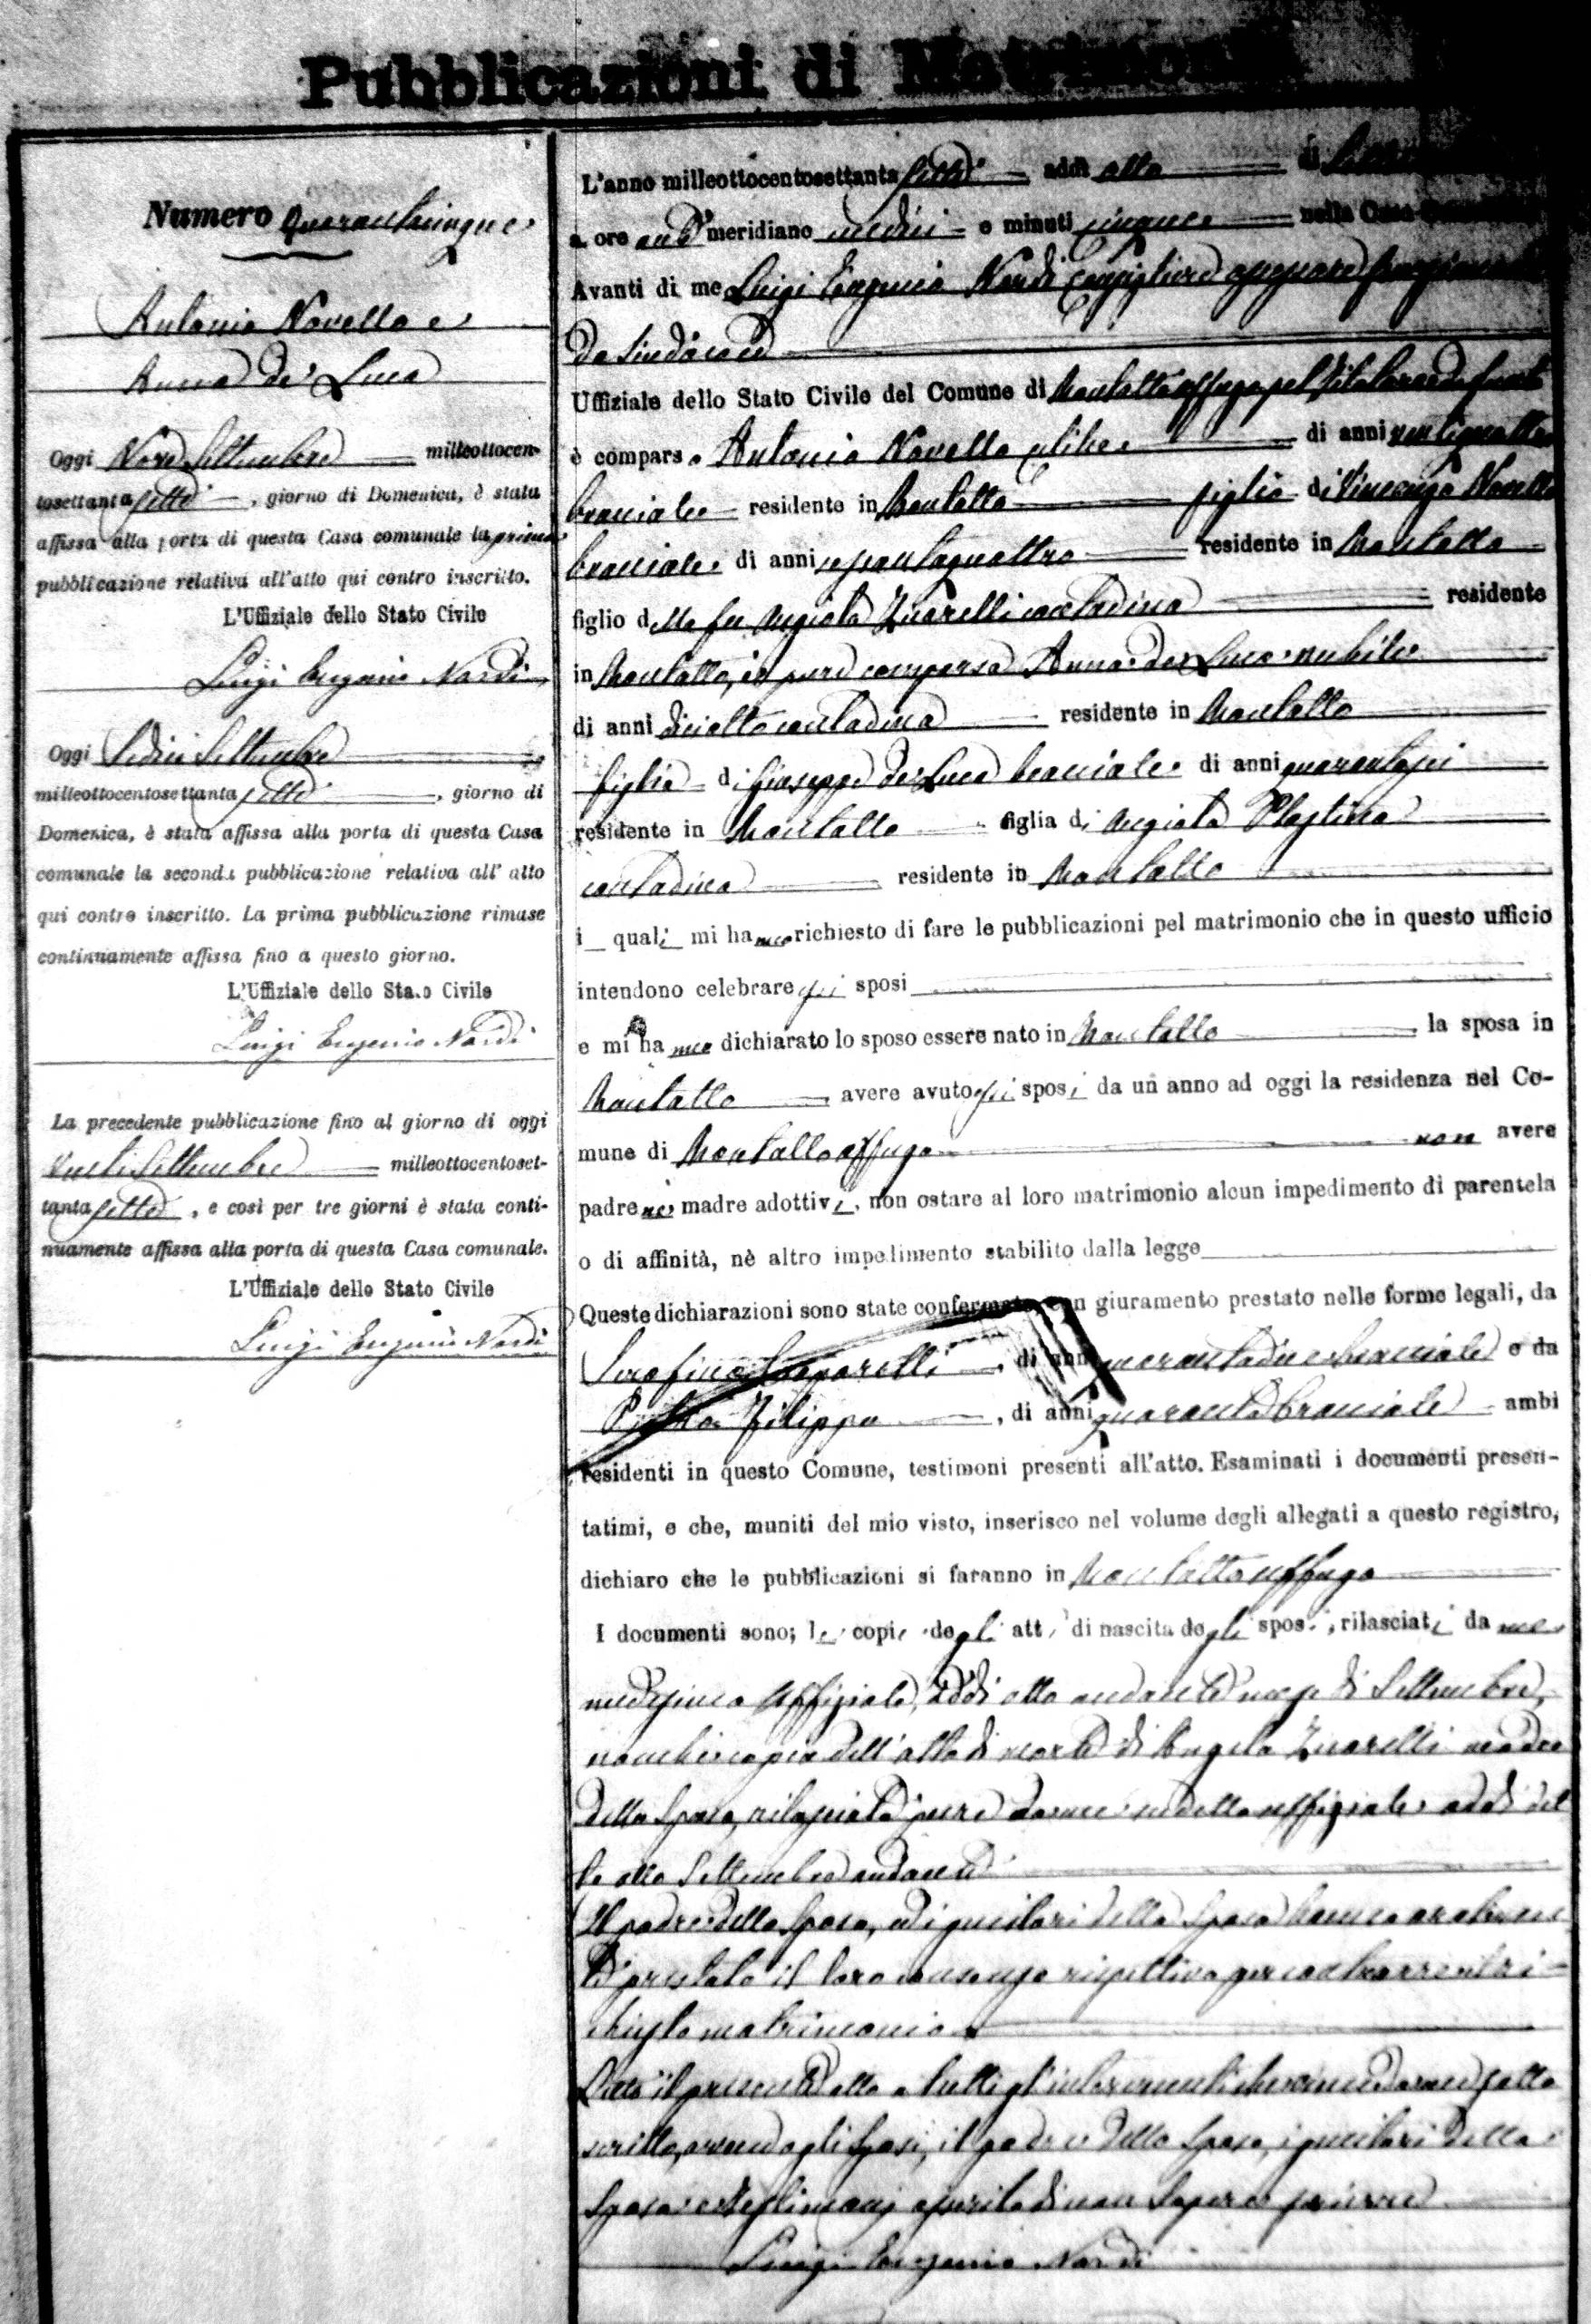 Pubblicazioni di
Numero Quarantacinque
Antonio Novello e
Anna de Luca
Oggi Nove Settembre milleottocen-
tosettanta sette, giorno di Domenica, è stata
affissa alla porta di questa Casa comunale la prima
pubblicazione relativa all'atto qui contro inscritto.
L'Uffiziale dello Stato Civile
Luigi Eugenio Nardi
Oggi Sedici Settembre
milleottocentosettanta sette, giorno di
Domenica, è stata affissa alla porta di questa Casa
comunale la seconda pubblicazione relativa all' atto
qui contro inscritto. La prima pubblicazione rimase
continuamente affissa fino a questo giorno.
L'Uffiziale dello Stato Civile
Luigi Eugenio Nardi
La precedente pubblicazione fino al giorno di oggi
Venti Settembre milleottocentoset-
tanta sette, e così per tre giorni è stata conti-
nuamente affissa alla porta di questa Casa comunale.
L'Uffiziale dello Stato Civile
Luigi Eugenio Nardi
L'anno milleottocentosettanta sette addì otto di
a ore anti meridiane undici e minuti cinque nella Casa
Avanti di me Luigi Eugenio Nardi Consigliere
da Sindaco
Uffiziale dello Stato Civile del Comune di Montalto Uffugo pel
è comparso Antonio Novello celibe di anni ventiquattro
bracciale residente in Montalto figlio di Vincenzo Novello
bracciale di anni sessantaquattro residente in Montalto
figlio della fu Angiola Zuarelli contadina residente
in Montalto, è pure comparsa Anna de Luca nubile
di anni diciotto contadina residente in Montalto
figlia di Giuseppe de Luca bracciale di anni quarantasei
residente in Montalto figlia di Angiola Plastina
contadina residente in Montalto
i quali mi hanno richiesto di fare le pubblicazioni pel matrimonio che in questo ufficio
intendono celebrare gli sposi
e mi hanno dichiarato lo sposo essere nato in Montalto la sposa in
Montalto avere avuto gli sposi da un anno ad oggi la residenza nel Co-
mune di Montalto Uffugo non avere
padre nè madre adottivi, non ostare al loro matrimonio alcun impedimento di parentela
o di affinità, nè altro impedimento stabilito dalla legge
Queste dichiarazioni sono state confermate con giuramento prestato nelle forme legali, da
Serafino Gasparelli, di anni quarantadue bracciale e da
Filippo, di anni quaranta bracciale ambi
residenti in questo Comune, testimoni presenti all'atto. Esaminati i documenti presen-
tatimi, e che, muniti del mio visto, inserisco nel volume degli allegati a questo registro,
dichiaro che le pubblicazioni si faranno in Montalto Uffugo
I documenti sono; le copie degli atti di nascita degli sposi, rilasciati da me
medesimo Uffiziale, addì otto andante mese di Settembre,
nonchè copia dell'atto di morte di Angela Zuarelli madre
dello Sposo, rilasciata pure da me suddetto uffiziale addì det
to otto Settembre andante
Il padre dello Sposo, ed i genitori della Sposa hanno oralmen
te prestato il loro consenso rispettivo per contrarre il ri-
chiesto matrimonio
Letto il presente atto a tutti gl'intervenuti
scritto, avendo gli Sposi, il padre dello Sposo, i genitori della
Sposa ed i testimonj asserito di non sapere scrivere
Luigi Eugenio Nardi